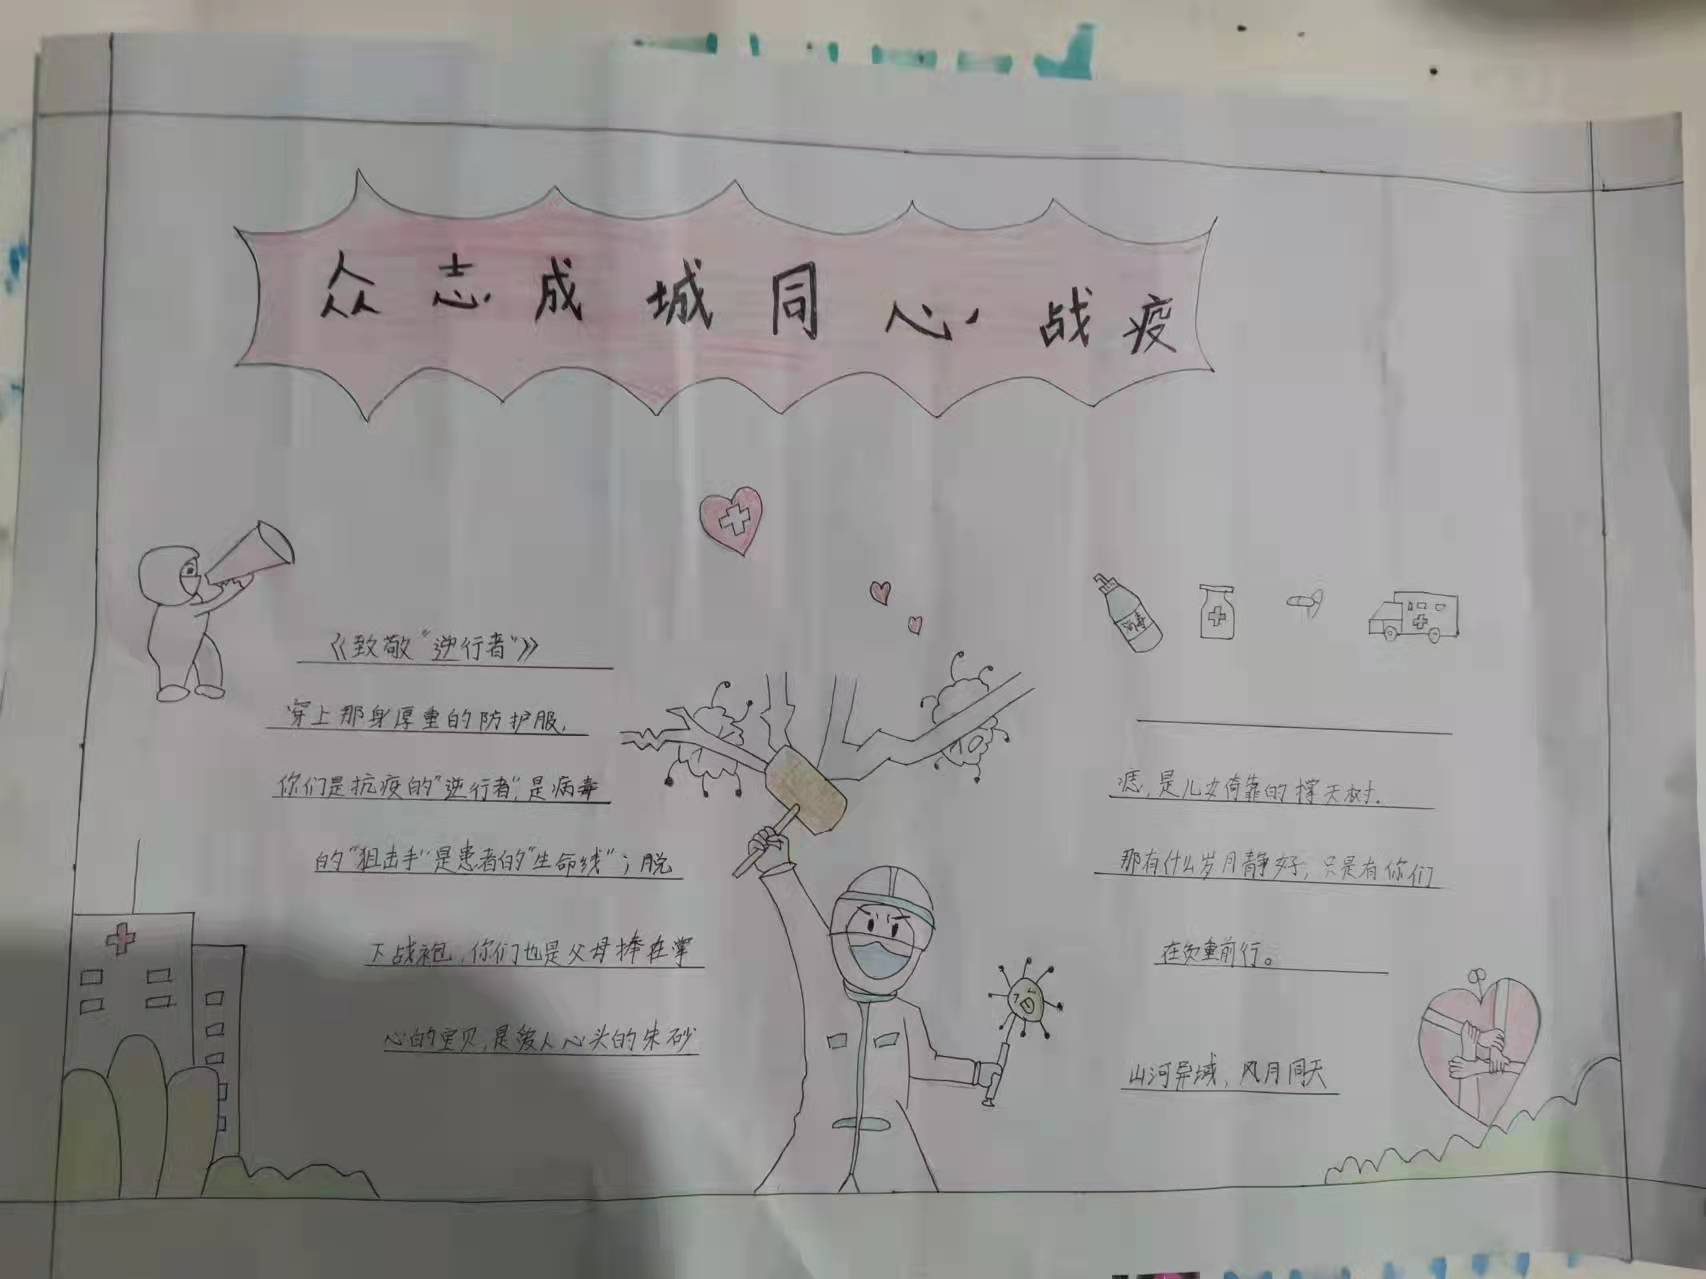 众志成城同心战疫
《致敬“逆行者”》
穿上那身厚重的防护服，
你们是抗疫的“逆行者”，是病毒
的“狙击手”是患者的“生命线”；脱
下战袍，你们也是父母捧在掌
心的宝贝，是爱人心头的朱砂
消毒
痣，是儿女倚靠的撑天树．
那有什么岁月静好，只是有你们
在负重前行。
山河异域，风月同天